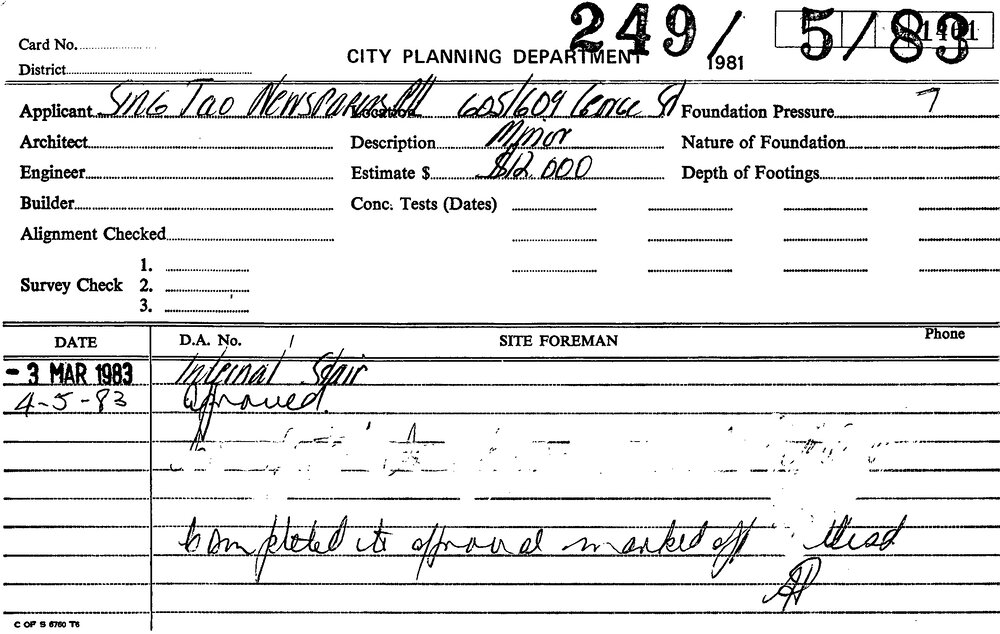 249/ 5/83
1401
Card No.
CITY PLANNING DEPARTMENT
1981
District
Applicant Sing Tao Newspapers P/L Location 605/609 George St Foundation Pressure 7
Architect Description Minor Nature of Foundation
Engineer Estimate $ $12.000 Depth of Footings
Builder Conc. Tests (Dates)
Alignment Checked
1.
Survey Check 2.
3.
DATE D.A. No. / SITE FOREMAN Phone
- 3 MAR 1983 Internal Stair
4-5-83 approved.
Completed approval marked off
C OF S 6760 T6